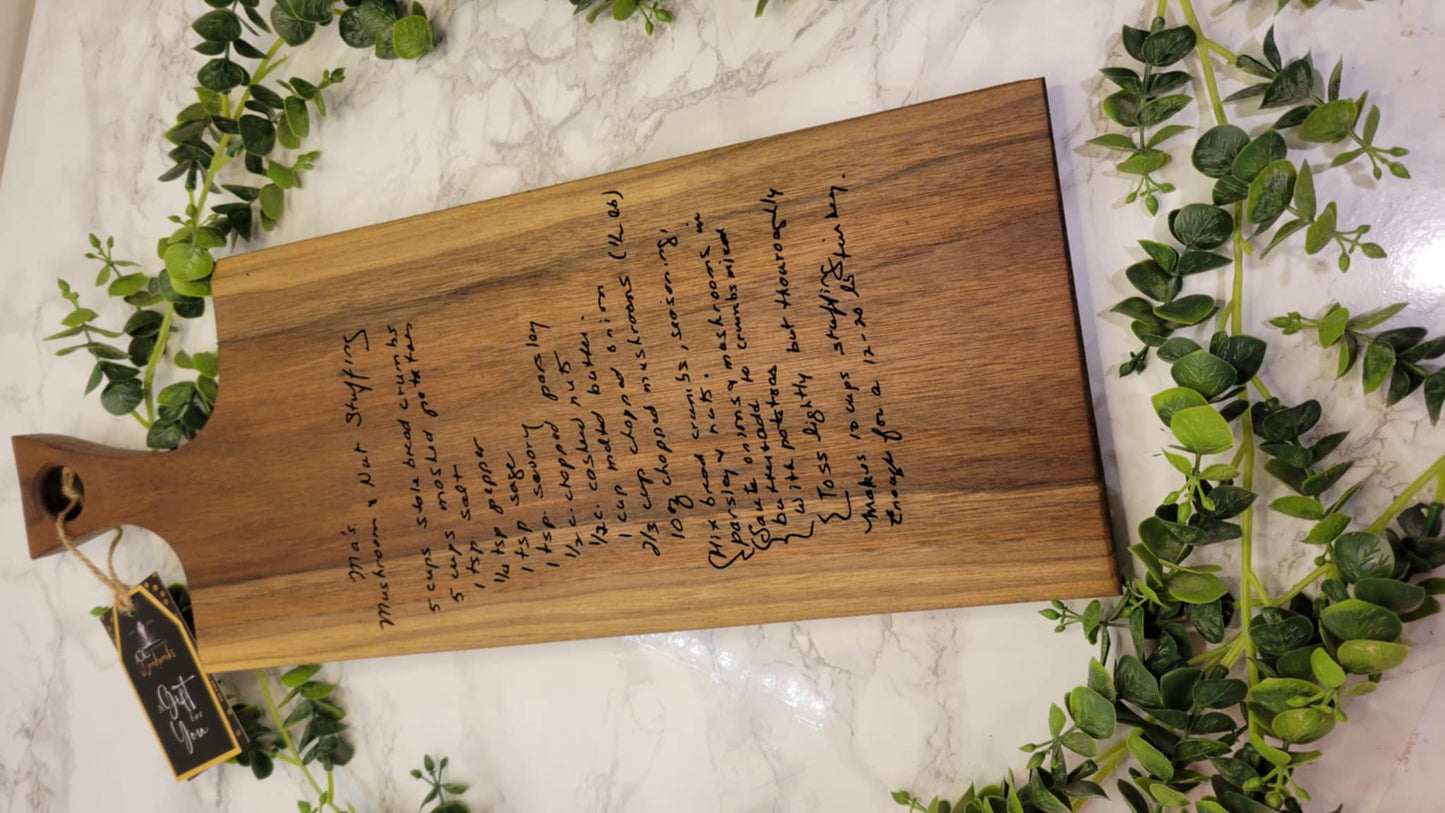 Ma's
Mushroom & Nut Stuffing
5 cups stale bread crumbs
5 cups mashed potatoes
1 tsp. salt
1/4 tsp pepper
1 tsp sage
1 tsp. savory
1/2 c. chopped parsley
1/2 c. cashew nuts
1 cup melted butter.
2/3 cup chopped onion
10 oz chopped mushrooms (1/2 lb)
Mix bread crumbs, seasoning,
parsley & nuts.
Saute onions & mushrooms in
butter add to crumbs mixed
with potatoes
Toss lightly but thouroughly
Makes 10 cups stuffing
enough for a 12-20 lb turkey.
A Gift
for
You